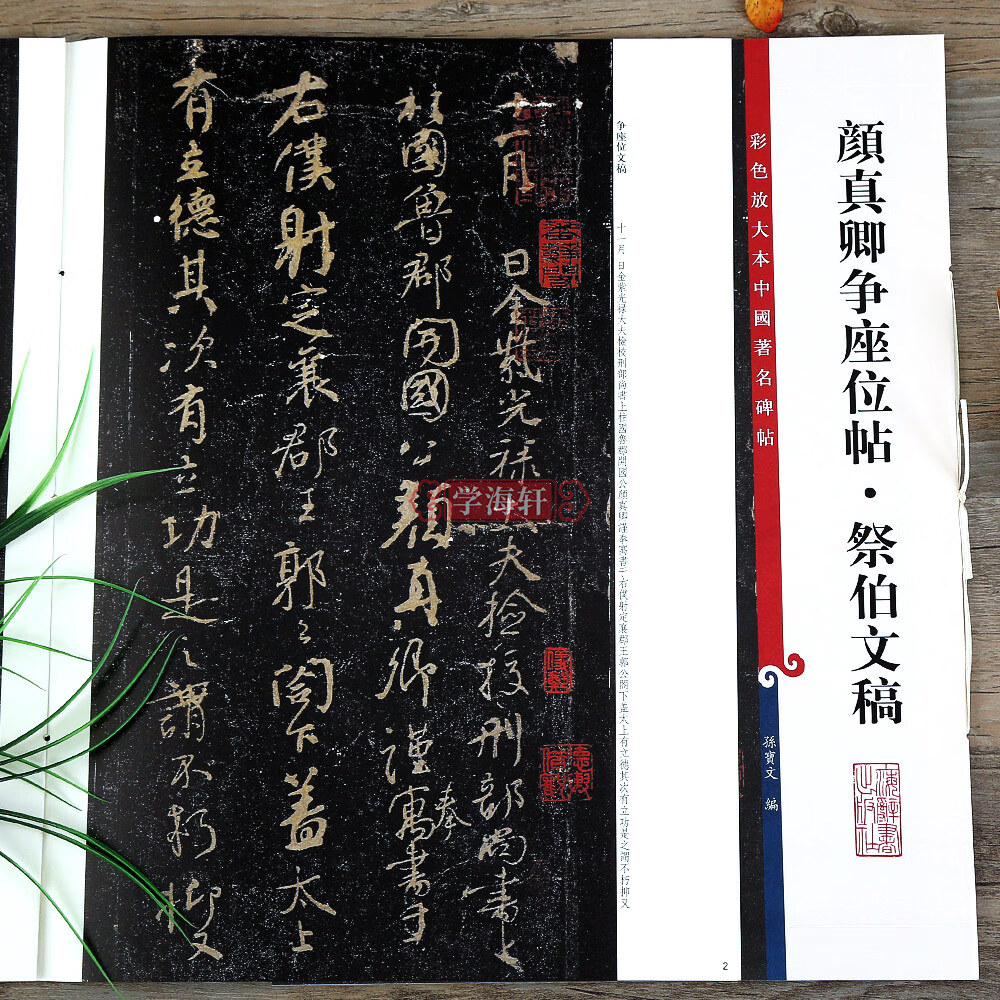 顔真卿争座位帖・祭伯文稿
彩色放大本中國著名碑帖
孫寶文 編
海辭書出版社
争座位文稿
十一月 日金紫光禄大夫檢校刑部尚書上柱國魯郡開國公顔真卿謹奉寓書于右僕射定襄郡王郭公閤下蓋太上有立德其次有立功是之謂不朽抑又
十一月 日金紫光禄大夫檢校刑部尚書上
柱國魯郡開國公顔真卿謹奉寓書于
右僕射定襄郡王郭公閤下蓋太上
有立德其次有立功是之謂不朽抑又
学海轩
2